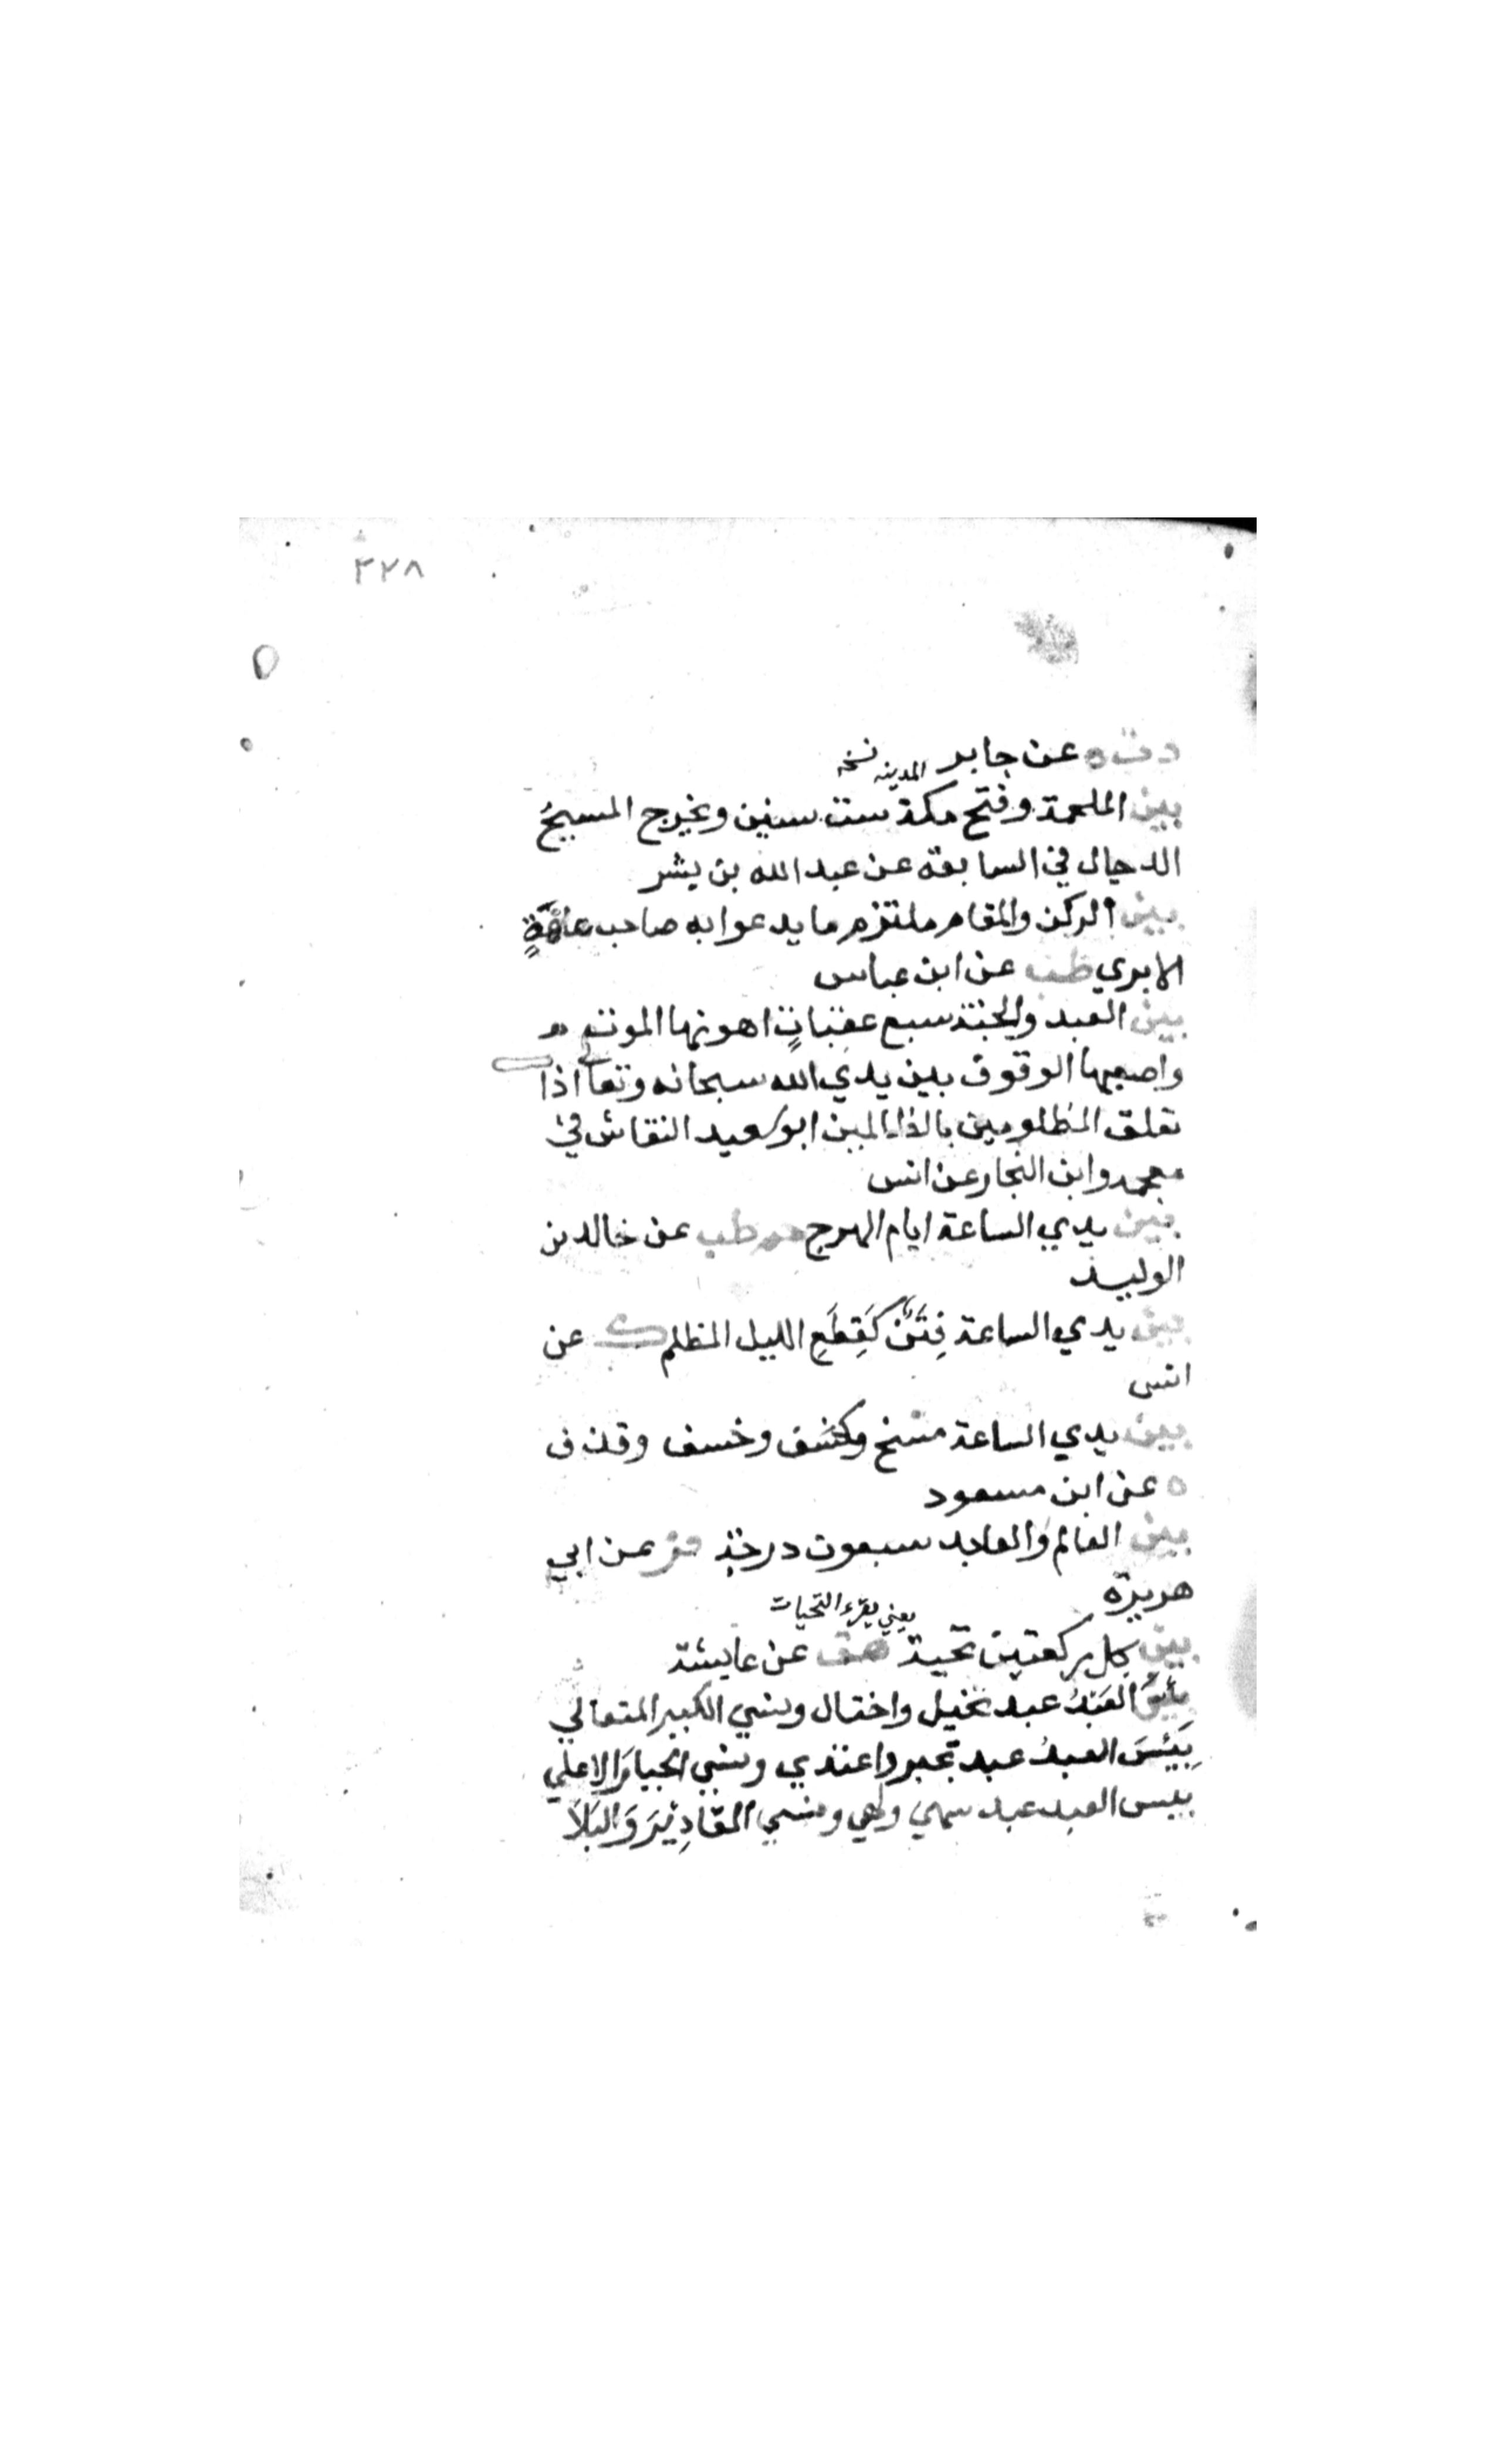 ٣٢٨
دت ه عن جابر
المدينه نسخه
بين الملحمة وفتح مكة ست سنين ويخرج المسيحُ
الدجال في السابعة عن عبد الله بن بشر
بين الركن والمقام ملتزم ما يدعوا به صاحب عاهةٍ
الا بري طب عن ابن عباس
بين العبد والجنة سبع عقباتٍ اهونها الموت
واصعبها الوقوف بين يدي الله سبحانه وتعالى اذا
تعلق المظلومين بالظالمين ابو سعيد النقاش في
معجمه وابن النجار عن انس
بين يدي الساعة ايام الهرج حم طب عن خالد بن
الوليد
بين يدي الساعة فِتَنٌ كَقِطَعِ الليل المظلم ك عن
انس
بين يدي الساعة مسخ وخسف وقذف
ه عن ابن مسعود
بين العالم والعابد سبعون درجة فر عن ابي
هريرة
يعني يقرء التحيات
بين كل ركعتين تحية هق عن عايشة
بئس العَبْدُ عبد تخيل واختال ونسي الكبير المتعالي
بِئسَ العبدُ عبد تجبر واعتدي ونسي الجبارَ الاعلي
بيس العبد عبد سهي ولهي ونسي المقَابِرَ وَالبَلَا